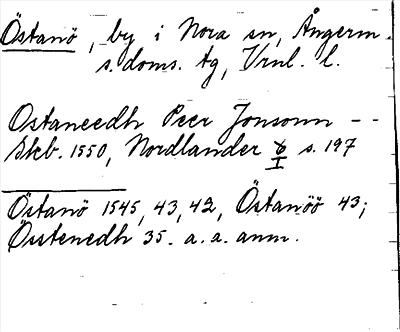 Östanö, by i Nora sn, Ångerm.
s. doms. tg, Vrnl. l.
Ostaneedh Peer Jonsonn - -
Skb. 1550, Nordlander 6 I s. 197
Östanö 1545, 43, 42, Östanöö 43;
Össtenedh 35. a. a. anm.